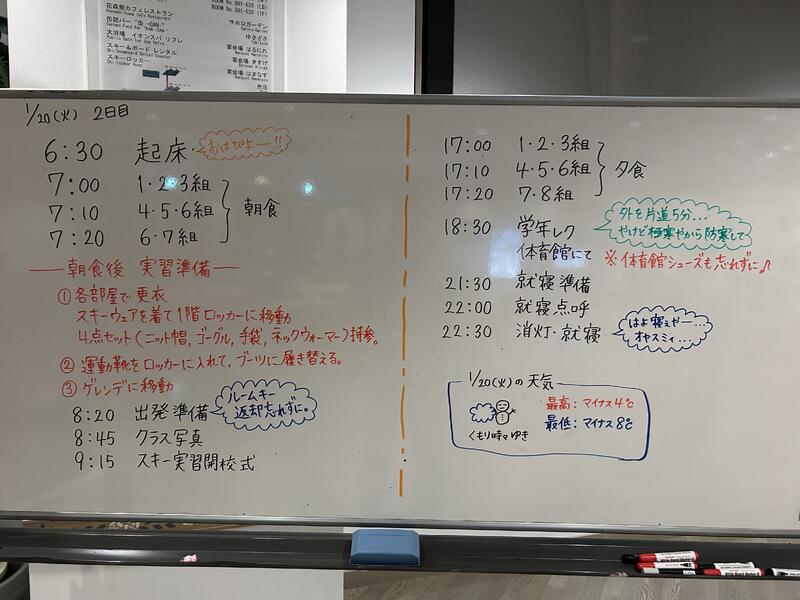 花森熊カフェレストラン
缶詰バー "缶 -CAN-"
大浴場 イオンスパ リフレ
スキー&ボード レンタル
スキーロッカー
サホロガーデン
ゆきざさ
宴会場 はるにれ
宴会場 きすげ
宴会場 はまなす
売店
1/20(火) 2日目
6:30 起床
おはぴよー!!
7:00 1・2・3組
7:10 4・5・6組
7:20 6・7組
朝食
朝食後 実習準備
① 各部屋で更衣
スキーウェアを着て1階ロッカーに移動
4点セット(ニット帽,ゴーグル,手袋,ネックウォーマー)持参。
② 運動靴をロッカーに入れて,ブーツに履き替える。
③ ゲレンデに移動
8:20 出発準備
ルームキー
返却忘れずに。
8:45 クラス写真
9:15 スキー実習開校式
17:00 1・2・3組
17:10 4・5・6組
17:20 7・8組
夕食
18:30 学年レク
体育館にて
外を片道5分...
やけど極寒やから防寒して
※体育館シューズも忘れずに♪
21:30 就寝準備
22:00 就寝点呼
22:30 消灯・就寝
はよ寝ぇやー...
オヤスミィ...
1/20(火)の天気
くもり時々ゆき
最高:マイナス4℃
最低:マイナス8℃